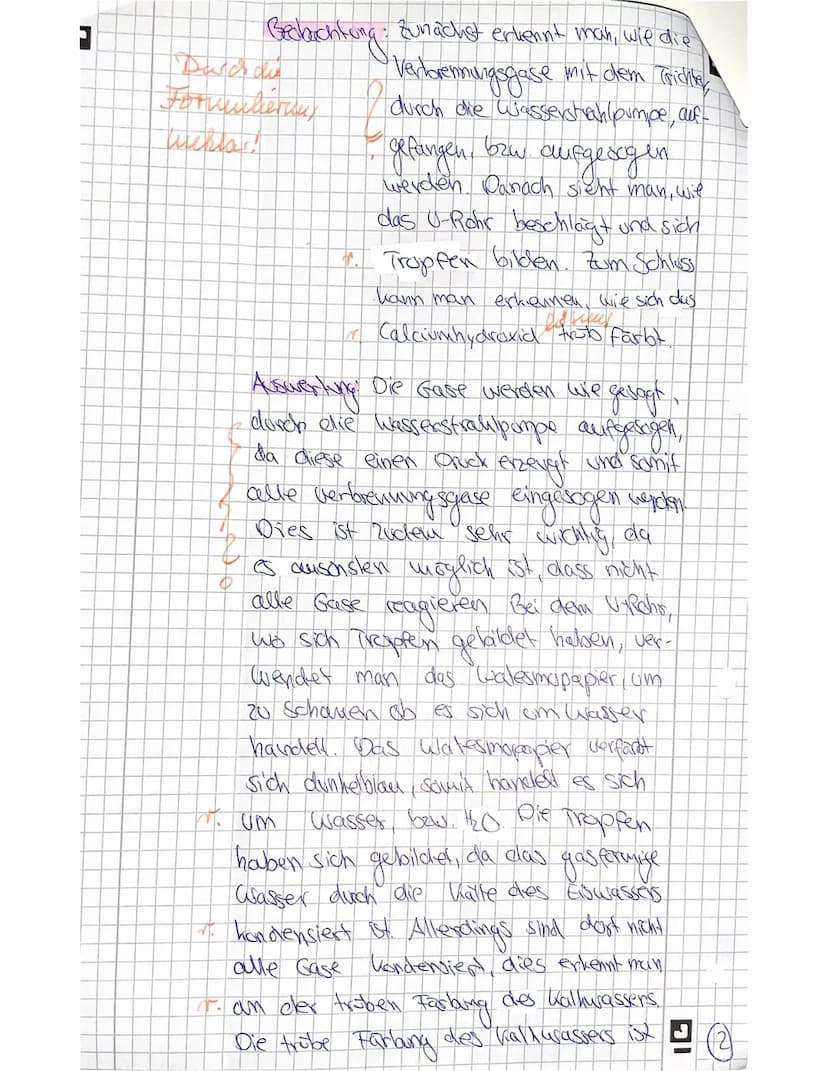 Beobachtung: Zunächst erkennt man, wie die
Verbrennungsgase mit dem Trichter,
durch die Wasserstrahlpumpe, auf-
gefangen, bzw aufgesogen
werden. Danach sieht man, wie
das U-Rohr beschlägt und sich
r. Tropfen bilden. Zum Schluss
kann man erkennen, wie sich das
r. Calciumhydroxid trüb färbt.
Durch die
?
Auswertung: Die Gase werden wie gesagt,
durch die Wasserstrahlpumpe aufgesogen,
da diese einen Druck erzeugt und somit
alle Verbrennungsgase eingesogen werden.
Dies ist zudem sehr wichtig, da
es ansonsten möglich ist, dass nicht
alle Gase reagieren. Bei dem U-Rohr,
wo sich Tropfen gebildet haben, ver-
wendet man das Watesmopapier, um
zu schauen ob es sich um Wasser
handelt. Das Watesmopapier verfärbt
sich dunkelblau, somit handelt es sich
r. um Wasser, bzw. H2O. Die Tropfen
haben sich gebildet, da das gasförmige
Wasser durch die Kälte des Eiswassers
r. kondensiert ist. Allerdings sind dort nicht
alle Gase kondensiert, dies erkennt man
r. an der trüben Färbung des Kalkwassers.
Die trübe Färbung des Kalkwassers ist
2